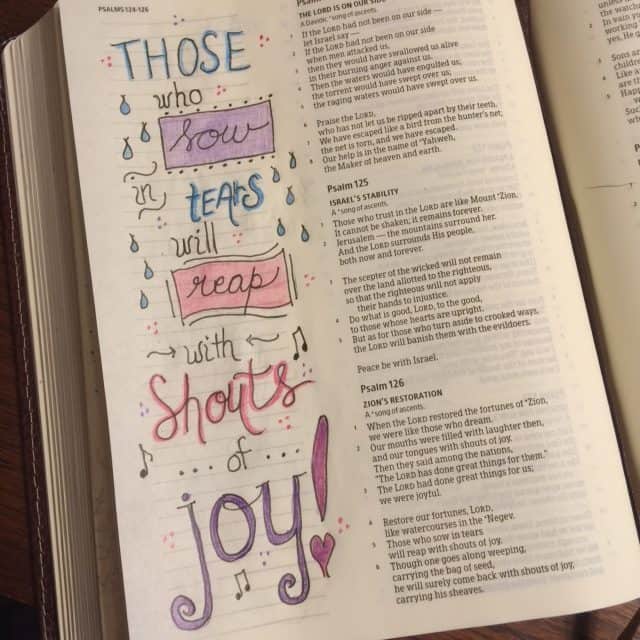 PSALMS 124–126
THOSE
who
sow
in
tEARs
will
reap
with
Shouts
of
joy!
THE LORD IS ON OUR SIDE
A Davidic *song of ascents.
1 If the LORD had not been on our side —
let Israel say —
2 If the LORD had not been on our side
when men attacked us,
3 then they would have swallowed us alive
in their burning anger against us.
4 Then the waters would have engulfed us;
the torrent would have swept over us;
5 the raging waters would have swept over us.
6 Praise the LORD,
who has not let us be ripped apart by their teeth.
7 We have escaped like a bird from the hunter's net;
the net is torn, and we have escaped.
8 Our help is in the name of *Yahweh,
the Maker of heaven and earth.
Psalm 125
ISRAEL'S STABILITY
A *song of ascents.
1 Those who trust in the LORD are like Mount *Zion.
It cannot be shaken; it remains forever.
2 Jerusalem — the mountains surround her.
And the LORD surrounds His people,
both now and forever.
3 The scepter of the wicked will not remain
over the land allotted to the righteous,
so that the righteous will not apply
their hands to injustice.
4 Do what is good, LORD, to the good,
to those whose hearts are upright.
5 But as for those who turn aside to crooked ways,
the LORD will banish them with the evildoers.
Peace be with Israel.
Psalm 126
ZION'S RESTORATION
A *song of ascents.
1 When the LORD restored the fortunes of *Zion,
we were like those who dream.
2 Our mouths were filled with laughter then,
and our tongues with shouts of joy.
Then they said among the nations,
"The LORD has done great things for them."
3 The LORD had done great things for us;
we were joyful.
4 Restore our fortunes, LORD,
like watercourses in the *Negev.
5 Those who sow in tears
will reap with shouts of joy.
6 Though one goes along weeping,
carrying the bag of seed,
he will surely come back with shouts of joy,
carrying his sheaves.